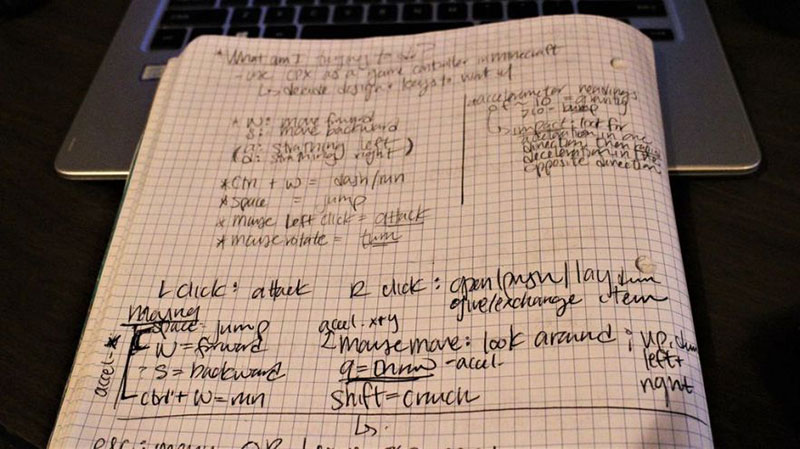 * What am I trying to do?
- use CPX as a game controller in minecraft
↳ decide design + keys to work w/
* W: move forward
S: move backward
(a: strafing left
(d: strafing right)
* Ctrl + W = dash/run
* Space = jump
* mouse left click = attack
* mouse rotate = turn
* accelerometer readings
~ 10 = gravity
>10 = bump
↳ impact: look for
acceleration in one
direction, then
deceleration in
opposite direction
L click: attack R click: open/push/lay down
give/exchange item
Moving
Space: jump
W = forward
S = backward
ctrl + W = run
accel-*
accel. x+y
mouse move: look around; up, down
left +
right
q = throw - accel
shift = crouch
↳
esc: menu OR